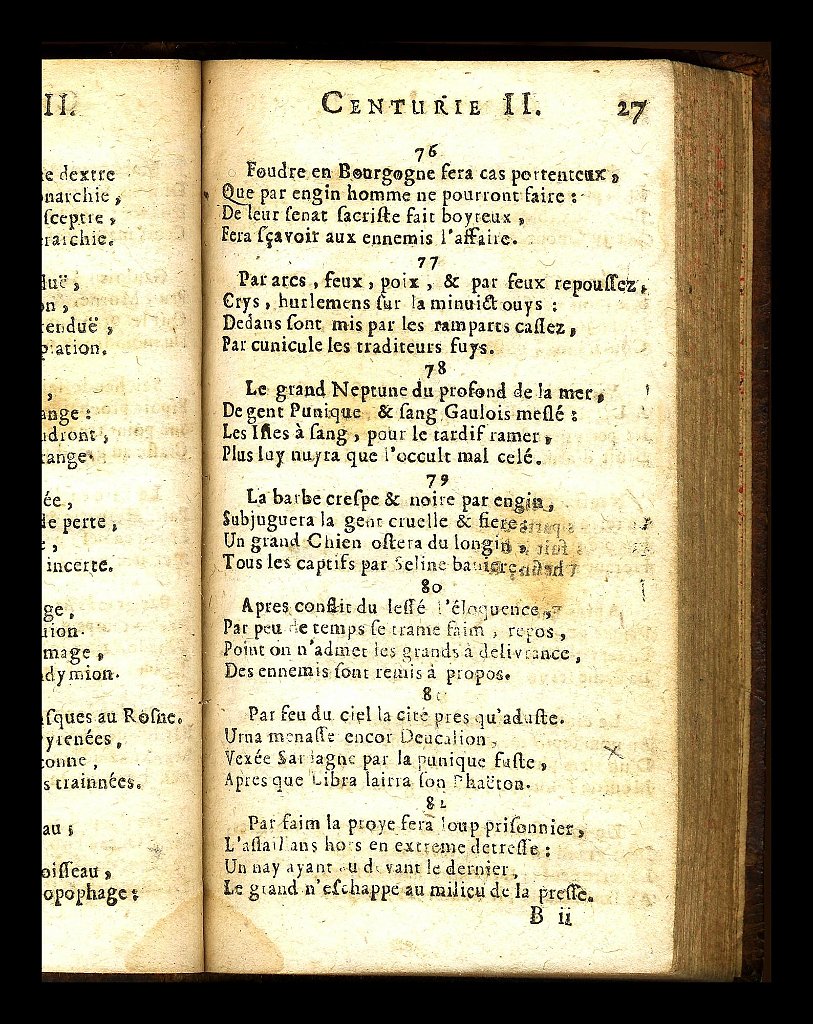 II.
e dextre
narchie,
ſceptre,
rarchie.
luë,
on,
renduë,
piation.
,
ange:
dront,
range
ée,
de perte,
e,
incerte.
ge,
nion.
mage,
dymion.
ſques au Roſne.
yrenées,
conne,
s trainnées.
au;
oiſſeau,
opophage:
CENTURIE II. 27
76
Foudre en Bourgogne ſera cas portenteux,
Que par engin homme ne pourront faire:
De leur ſenat ſacriſte fait boyteux,
Fera ſçavoir aux ennemis l'affaire.
77
Par arcs, feux, poix, & par feux repouſſez,
Crys, hurlemens ſur la minuict ouys:
Dedans ſont mis par les ramparts caſſez,
Par cunicule les traditeurs fuys.
78
Le grand Neptune du profond de la mer,
De gent Punique & ſang Gaulois meſlé:
Les Iſles à ſang, pour le tardif ramer,
Plus luy nuyra que l'occult mal celé.
79
La barbe creſpe & noire par engin,
Subjuguera la gent cruelle & fiere
Un grand Chien oſtera du longin,
Tous les captifs par Seline baniere.
80
Apres conflit du leſſé l'éloquence,
Par peu de temps ſe trame faim, repos,
Point on n'admet les grands à delivrance,
Des ennemis ſont remis à propos.
81
Par feu du ciel la cité pres qu'aduſte.
Urna menaſſe encor Deucalion,
Vexée Sardagne par la punique fuſte,
Apres que Libra lairra ſon Phaëton.
82
Par faim la proye fera loup priſonnier,
L'aſſaillans hors en extreme detreſſe:
Un nay ayant au devant le dernier,
Le grand n'eſchappe au milieu de la preſſe.
B ii